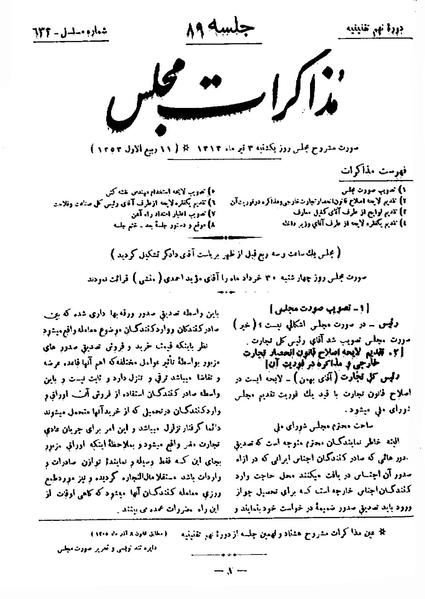 دورهٔ نهم تقنینیه
جلسه ۸۹
شماره مسلسل - ۶۳۲
مذاکرات مجلس
صورت مشروح مجلس روز یکشنبه ۳ تیر ماه ۱۳۱۳ * (۱۱ ربیع الاول ۱۳۵۳)
فهرست مذاکرات
۱) تصویب صورت مجلس
۲) تقدیم لایحه اصلاح قانون انحصار تجارت خارجی و مذاکره در فوریت آن
۳) تقدیم لوایح از طرف آقای کفیل معارف
۴) تقدیم یکفقره لایحه از طرف آقای وزیر داخله
۵) تصویب لایحه استخدام مهندس نقشه کش
۶) تقدیم یکفقره لایحه از طرف آقای رئیس کل صناعت و فلاحت
۷) تصویب اعتبار امتداد راه آهن
۸) موقع و دستور جلسه بعد - ختم جلسه
(مجلس یک ساعت و سه ربع قبل از ظهر بریاست آقای دادگر تشکیل گردید)
صورت مجلس روز چهارشنبه ۳۰ خرداد ماه را آقای مؤید احمدی (منشی) قرائت نمودند
[۱- تصویب صورت مجلس]
رئیس - در صورت مجلس اشکالی نیست؟ (خیر)
صورت مجلس تصویب شد آقای رئیس کل تجارت.
[۲- تقدیم لایحه اصلاح قانون انحصار تجارت
خارجی و مذاکره در فوریت آن]
رئیس کل تجارت (آقای بهمن) - لایحه ایست در
اصلاح قانون تجارت با قید یک فوریت تقدیم مجلس
شورای ملی میشود.
ساحت محترم مجلس شورای ملی
البته خاطر نمایندگان محترم متوجه است که تصدیق
صدور آن اجناس دریافت میکنند محل حاجت وارد
کنندگان اجناس خارجه است که برای تحصیل جواز
ورود باید تصدیق صدور ضمیمهٔ درخواست خود نمایند و
باین واسطه تصدیق صدور ورقه بها داری شده که بین
صادرکنندگان و واردکنندگان موضوع معامله واقع میشود
نظر باینکه قیمت خرید و فروش تصدیق صدور های
مزبور بواسطهٔ تأثیر عوامل مختلفه که اهم آنها قاعده عرضه
و تقاضا میباشد ترقی و تنزل دارد و ثابت نیست و باین
واسطه صادر کنندگان استفاده از فروش آن اوراق و
واردکنندگان در تحمیلی که از خرید آنها متحمل میشوند
دائماً گرفتار تزلزل میباشند و این امر برای جریان عادی
تجارت مضر واقع میشود و بملاحظهٔ اینکه اوراق مزبور
بجای این که فقط وسیله و نمایندهٔ توازن صادرات و
واردات باشد مستقلاً مال التجاره گردیده و نیز مورد طمع
روزی معامله کنندگان آنها میشود که گاهی اوقات از
این راه مضررات عمده می بینند.
* عین مذاکرات مشروح هشتاد و نهمین جلسه از دورهٔ نهم تقنینیه
(مطابق قانون ۸ آذر ماه ۱۳۰۵)
دایره تند نویسی و تحریر صورت مجلس
- ۱ -